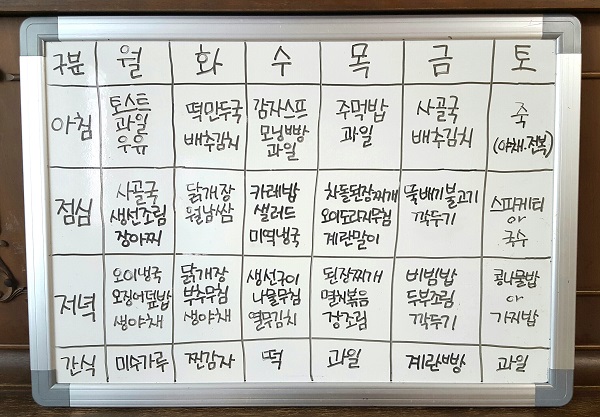 구분 월 화 수 목 금 토
아침
토스트
과일
우유
떡만두국
배추김치
감자스프
모닝빵
과일
주먹밥
과일
사골국
배추김치
죽
(야채.전복)
점심
사골국
생선조림
장아찌
닭개장
월남쌈
카레밥
샐러드
미역냉국
차돌된장찌개
오이도라지무침
계란말이
뚝배기불고기
깍두기
스파게티
or
국수
저녁
오이냉국
오징어덮밥
생야채
닭개장
부추무침
생야채
생선구이
나물무침
열무김치
된장찌개
멸치볶음
장조림
비빔밥
두부조림
깍두기
콩나물밥
or
가지밥
간식 미숫가루 찐감자 떡 과일 계란빵 과일